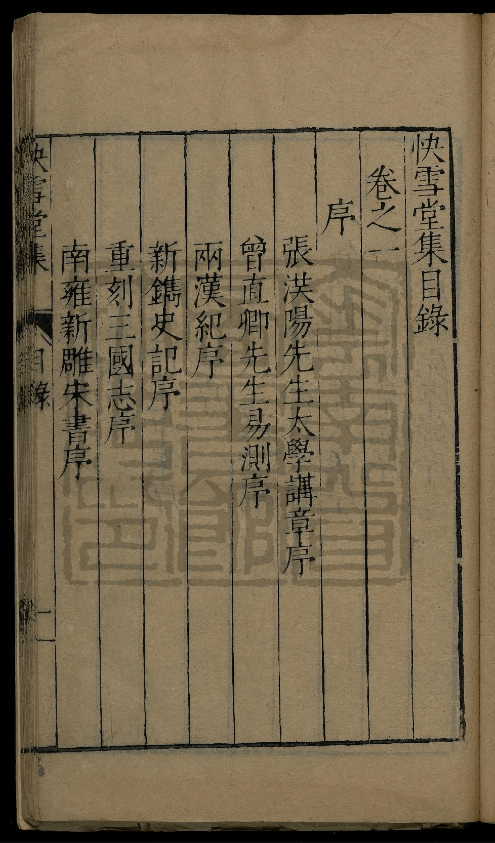 快雪堂集目錄
卷之一
序
張洪陽先生太學講章序
曾直卿先生易測序
兩漢紀序
新鐫史記序
重刻三國志序
南雍新雕宋書序
快雪堂集
目錄
一